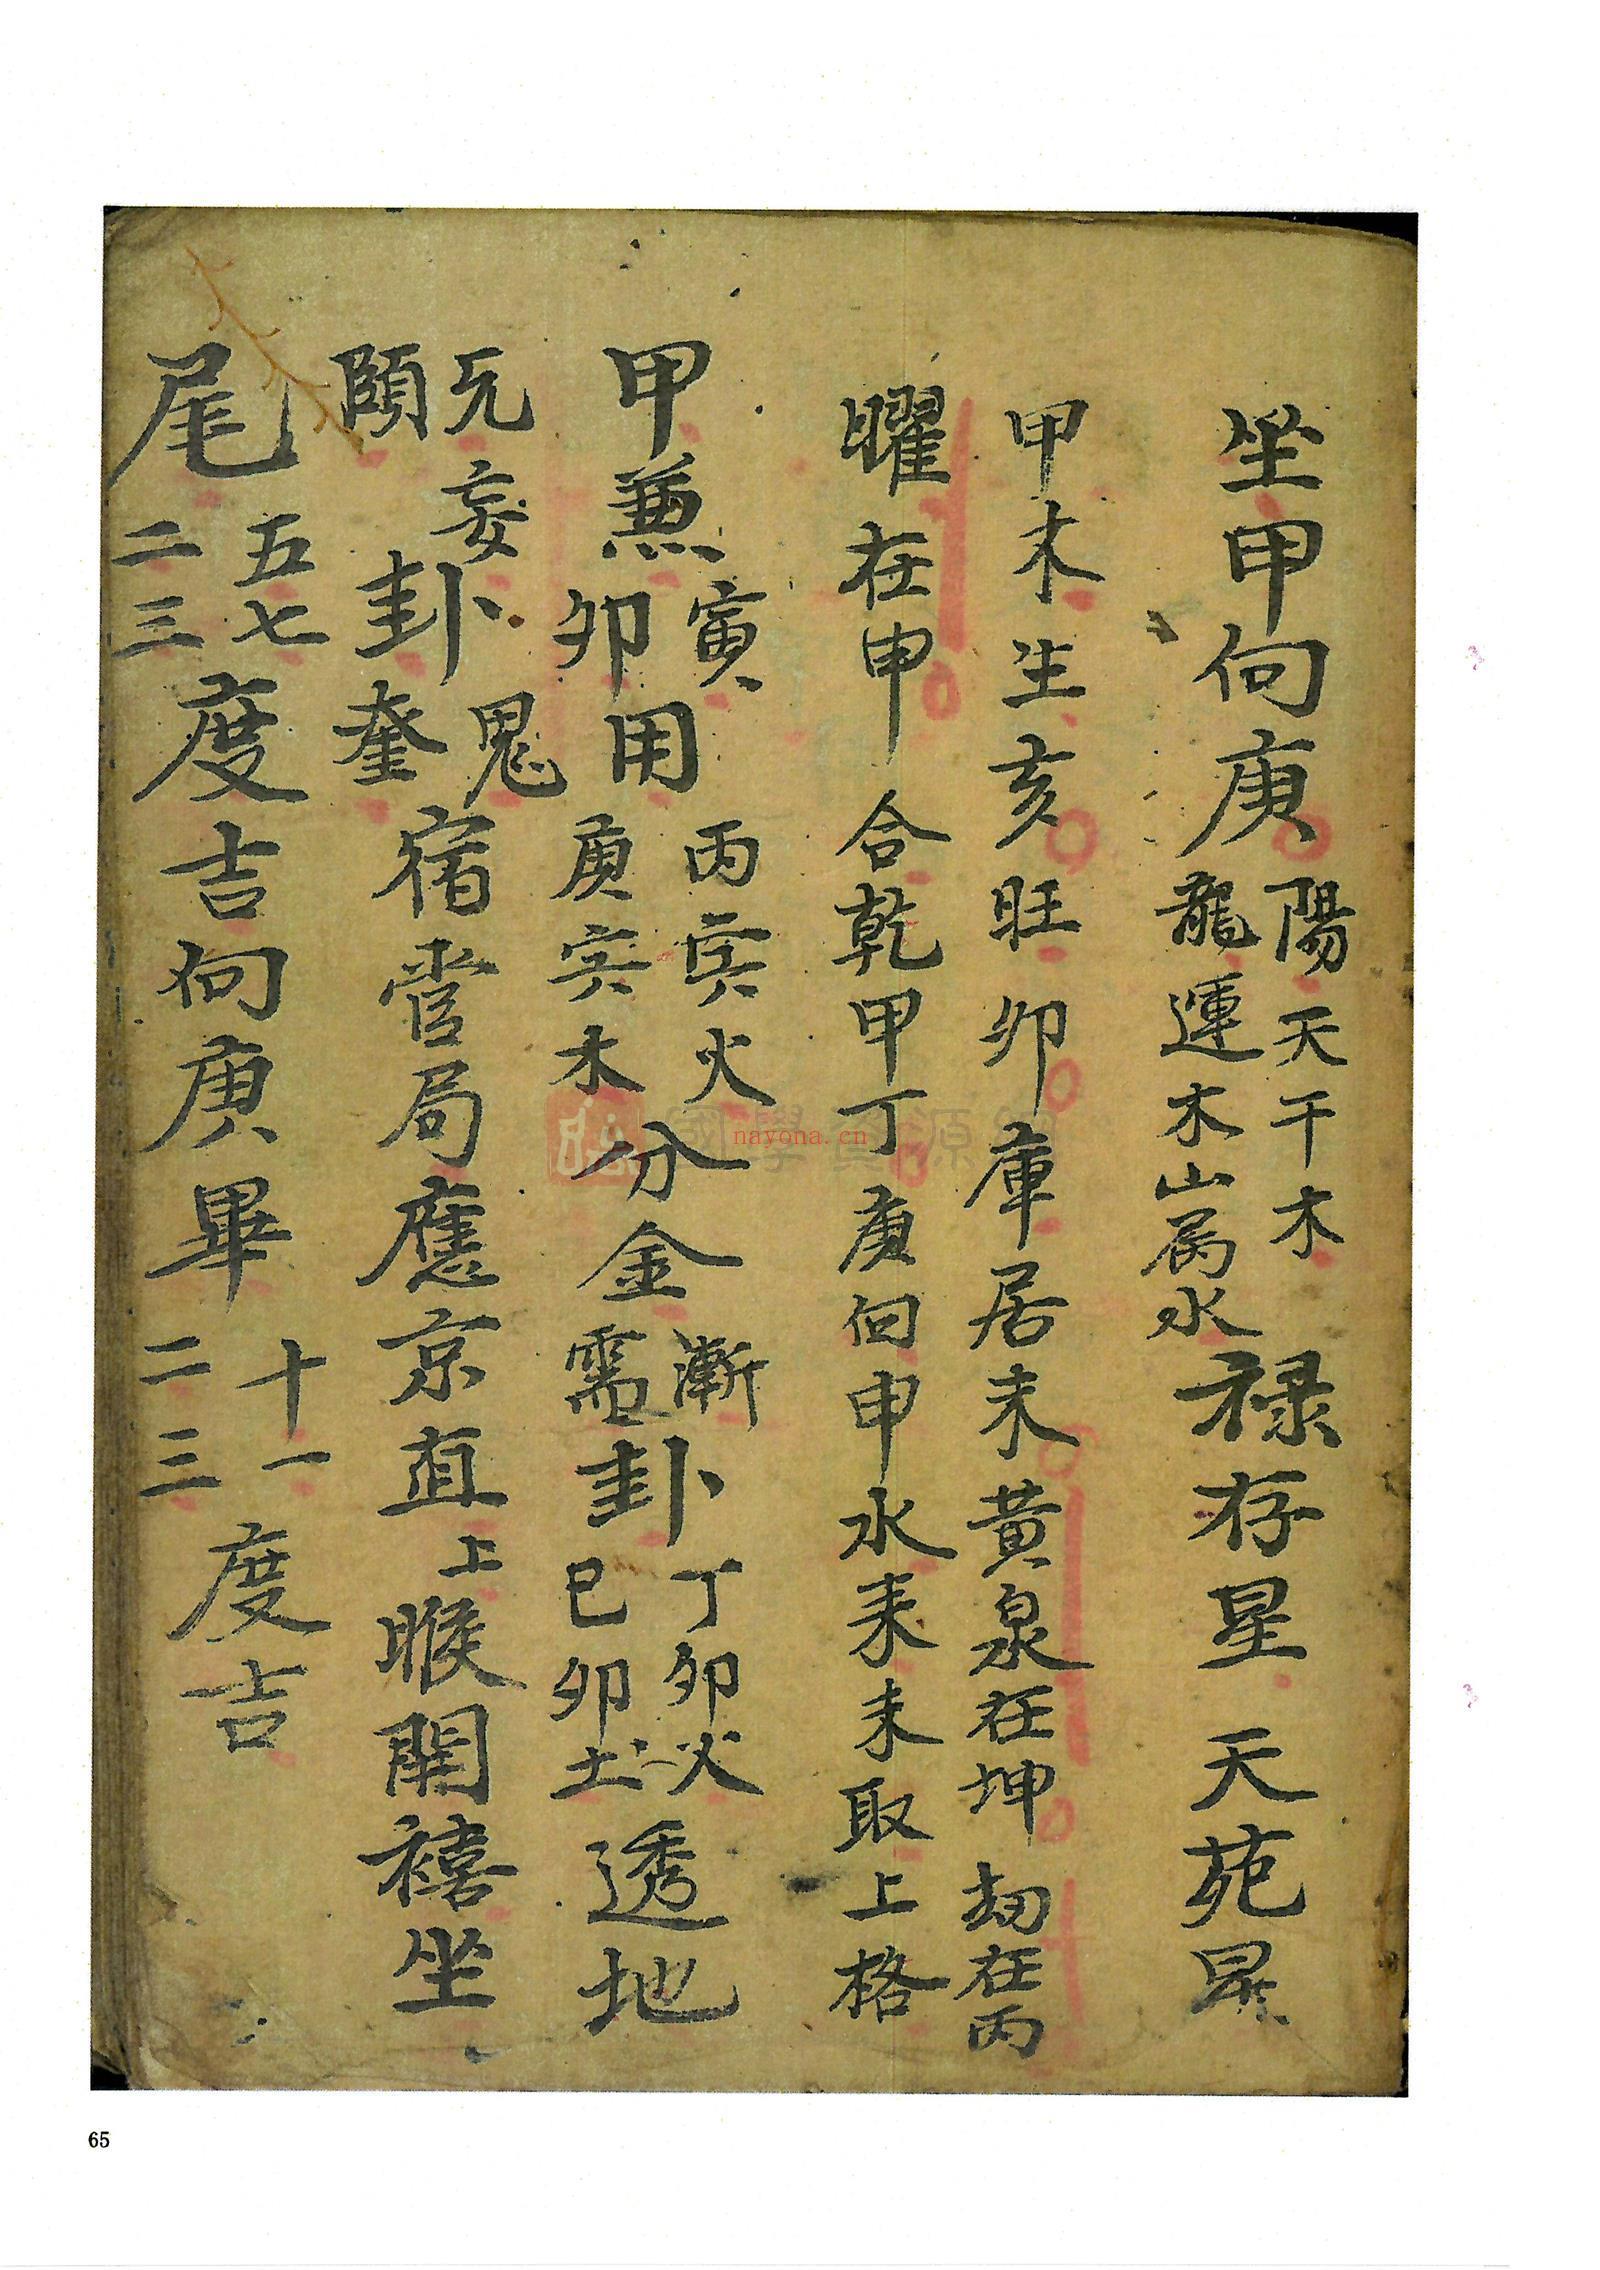 坐甲向庚陽天干木龍運木山属水禄存星天苑星
甲木生亥旺卯庫居未黃泉在坤刼在丙
曜在申合乾甲丁庚向申水耒未取上格
甲兼寅卯用丙寅火庚寅木分金漸需卦丁卯火己卯土透地
无妄頤卦鬼奎宿管局應京直上睺開禧坐
尾五七二三度吉向庚畢十一二三度吉
國學資源
nayona.cn
65